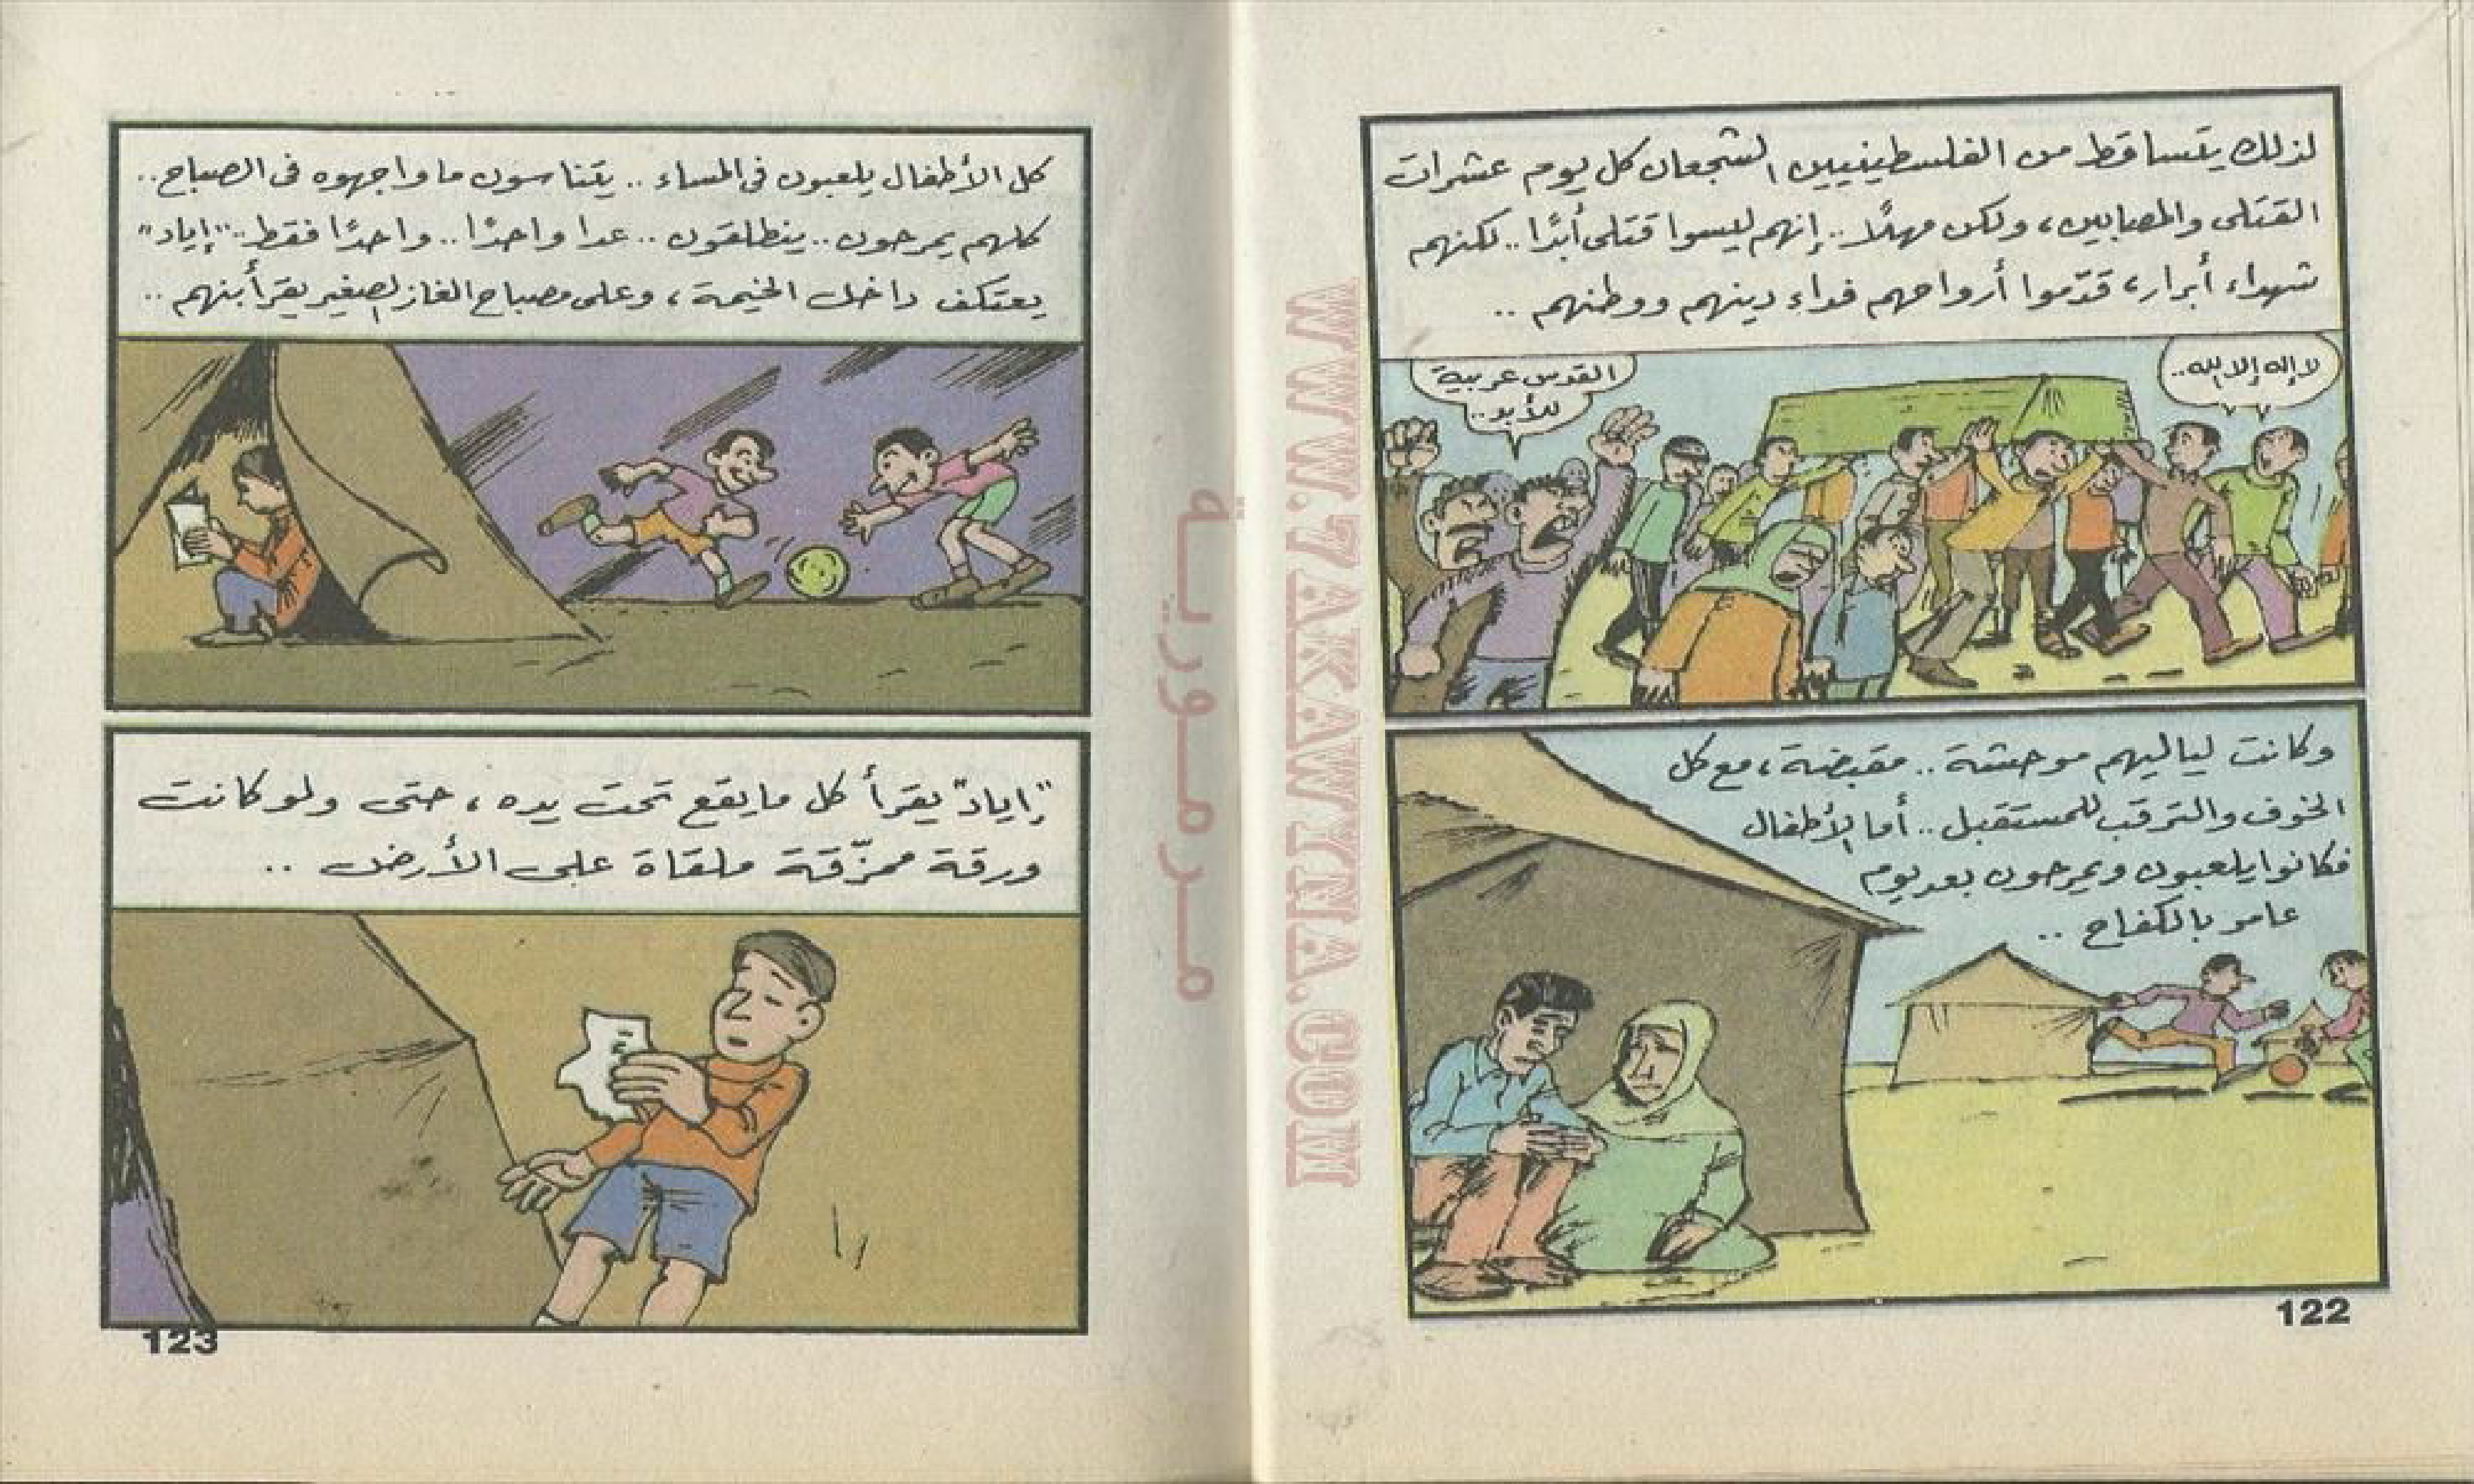 لذلك يتساقط من الفلسطينيين الشجعان كل يوم عشرات
القتلى والمصابين، ولكن مهلًا.. إنهم ليسوا قتلى أبدًا.. لكنهم
شهداء أبرار، قدّموا أرواحهم فداء دينهم ووطنهم ..
لا إله إلا الله..
القدس عربية
للأبد..
وكانت لياليهم موحشة .. مقبضة، مع كل
الخوف والترقب للمستقبل .. أما الأطفال
فكانوا يلعبون ويمرحون بعد يوم
عامر بالكفاح ..
122
كل الأطفال يلعبون فى المساء .. يتناسون ما واجهوه فى الصباح ..
كلهم يمرحون .. ينطلقون .. عدا واحدًا .. واحدًا فقط .. "إياد"
يعتكف داخل الخيمة، وعلى مصباح الغاز الصغير يقرأ بنهم ..
"إياد" يقرأ كل ما يقع تحت يده، حتى ولو كانت
ورقة ممزّقة ملقاة على الأرض ..
123
مــرمــوريــة
WWW.7AKAWYNA.COM